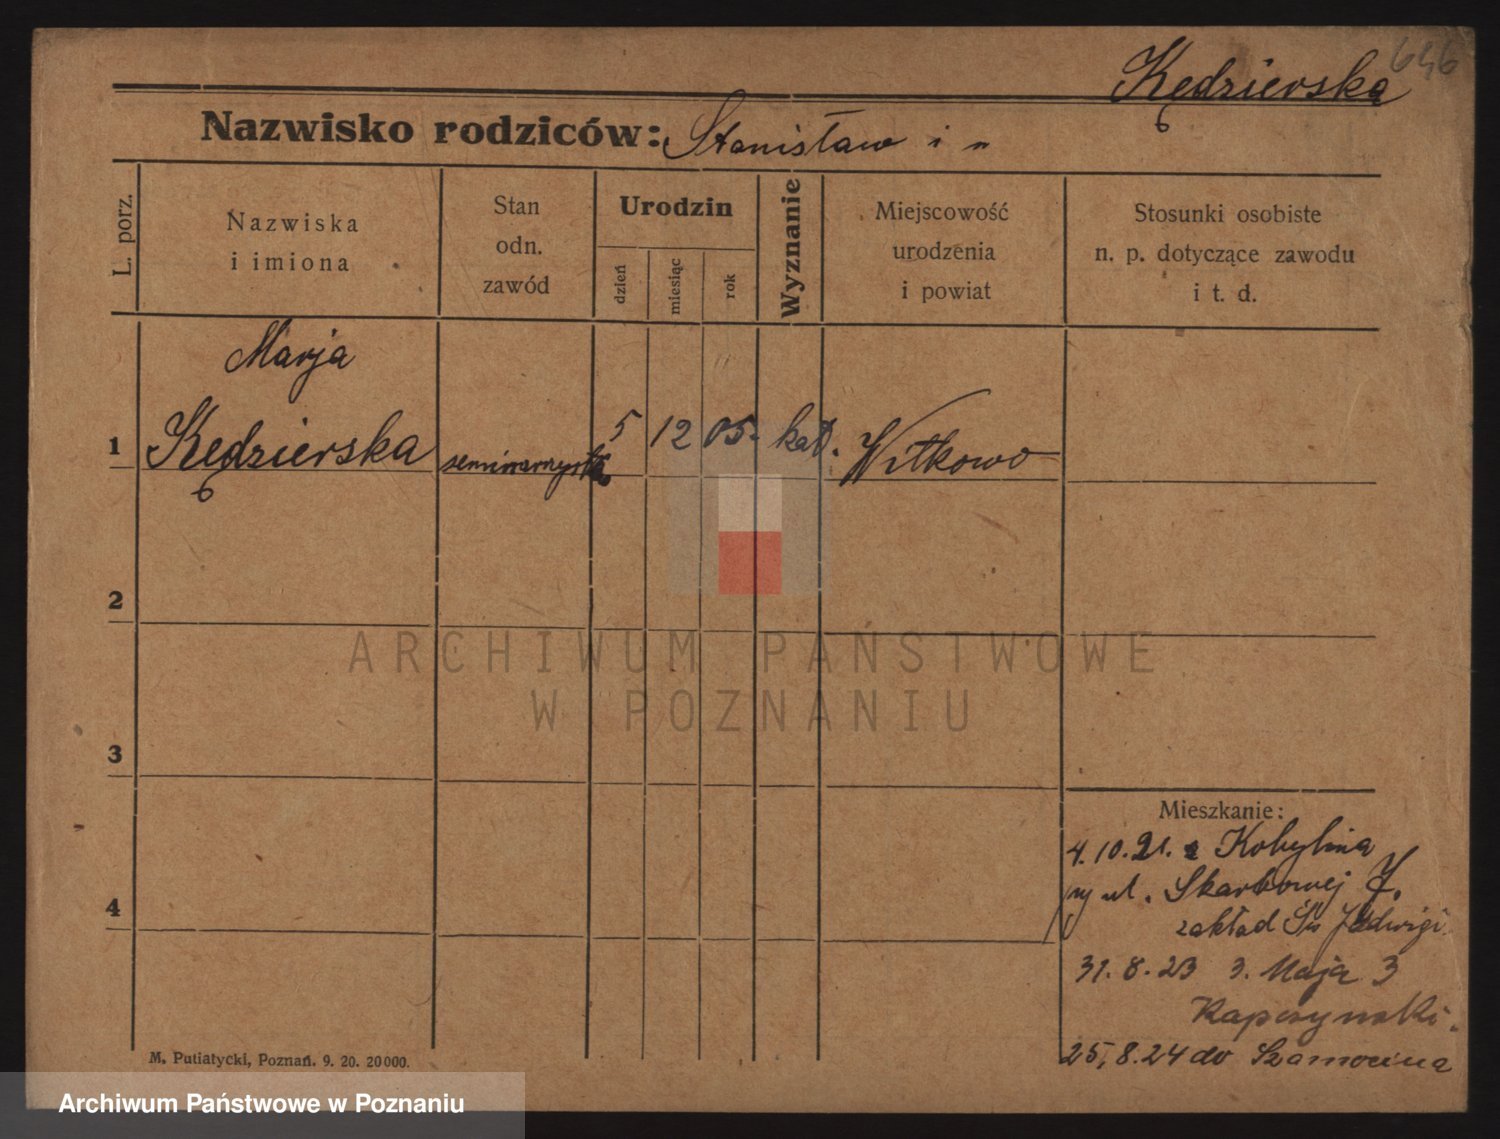 646
Kędzierska
Nazwisko rodziców: Stanisław i "
L. porz.
Nazwiska
i imiona
Stan
odn.
zawód
Urodzin
dzień
miesiąc
rok
Wyznanie
Miejscowość
urodzenia
i powiat
Stosunki osobiste
n. p. dotyczące zawodu
i t. d.
Marja
1 Kędzierska seminarzystka 5 12 05. kat. Witkowo
2
ARCHIWUM PAŃSTWOWE
W POZNANIU
3
Mieszkanie:
4.10.21. z Kobylina
ul. Skarbowej 7.
4
zakład Św Jadwigi
31.8.23 3. Maja 3
Kapczynski.
25,8.24 do Szamocina
M. Putiatycki, Poznań. 9. 20. 20000.
Archiwum Państwowe w Poznaniu